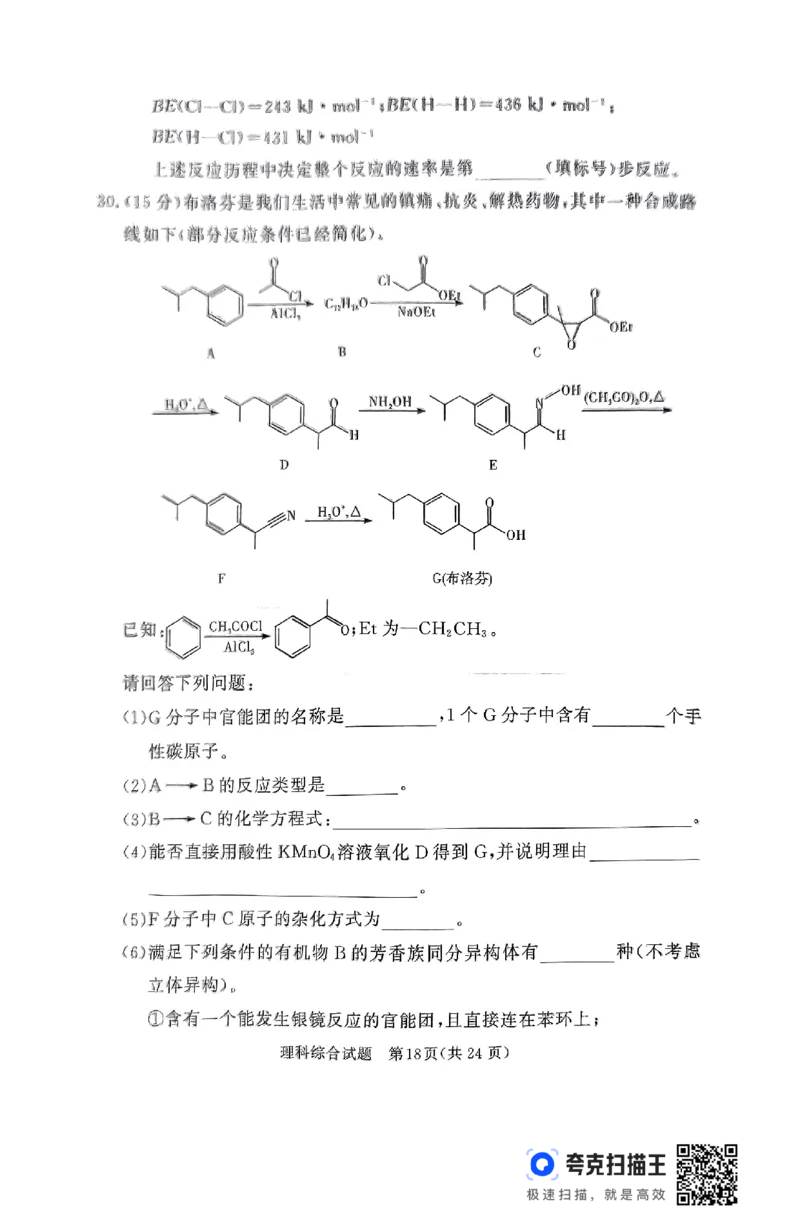 BE(Cl—Cl)=243 kJ·mol⁻¹;BE(H—H)=436 kJ·mol⁻¹;
BE(H—Cl)=431 kJ·mol⁻¹
上述反应历程中决定整个反应的速率是第______(填标号)步反应。
30.(15分)布洛芬是我们生活中常见的镇痛、抗炎、解热药物,其中一种合成路
线如下(部分反应条件已经简化)。
O Cl AlCl₃ C₁₂H₁₆O Cl O OEt NaOEt O O OEt
A B C
H₃O⁺,△ O H NH₂OH N OH H (CH₃CO)₂O,△
D E
N H₃O⁺,△ O OH
F G(布洛芬)
已知: CH₃COCl AlCl₃ O;Et为—CH₂CH₃。
请回答下列问题:
(1)G分子中官能团的名称是________,1个G分子中含有______个手
性碳原子。
(2)A⟶B的反应类型是______。
(3)B⟶C的化学方程式:______________________________。
(4)能否直接用酸性KMnO₄溶液氧化D得到G,并说明理由_________
______________________。
(5)F分子中C原子的杂化方式为______。
(6)满足下列条件的有机物B的芳香族同分异构体有______种(不考虑
立体异构)。
①含有一个能发生银镜反应的官能团,且直接连在苯环上;
理科综合试题 第18页(共24页)
夸克扫描王
极速扫描,就是高效